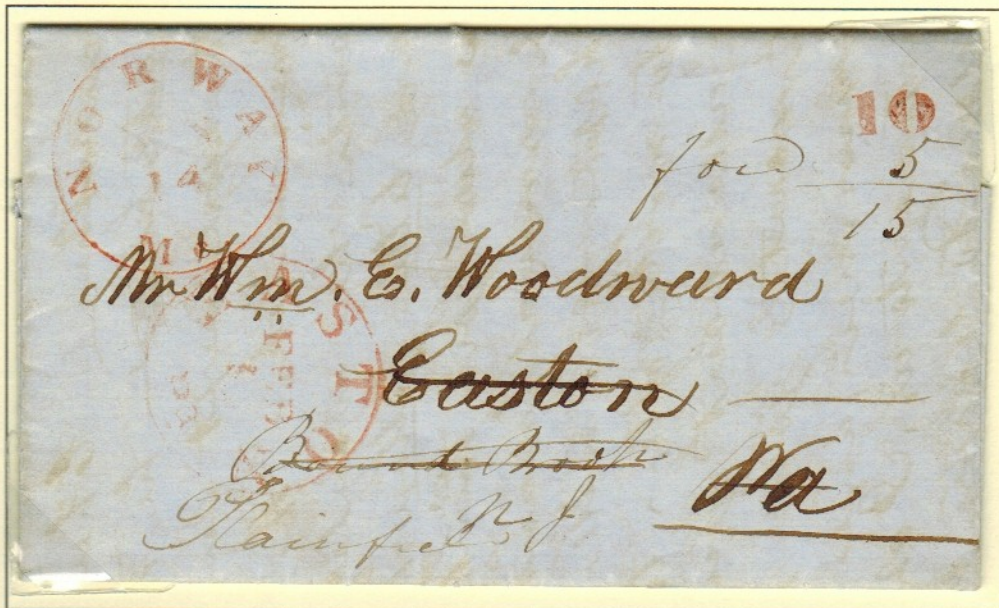 NORWAY
14
10
forw 5
15
Mr Wm. E. Woodward
EASTON
FEB
Easton
Bound Brook
Pa
Plainfield N J.